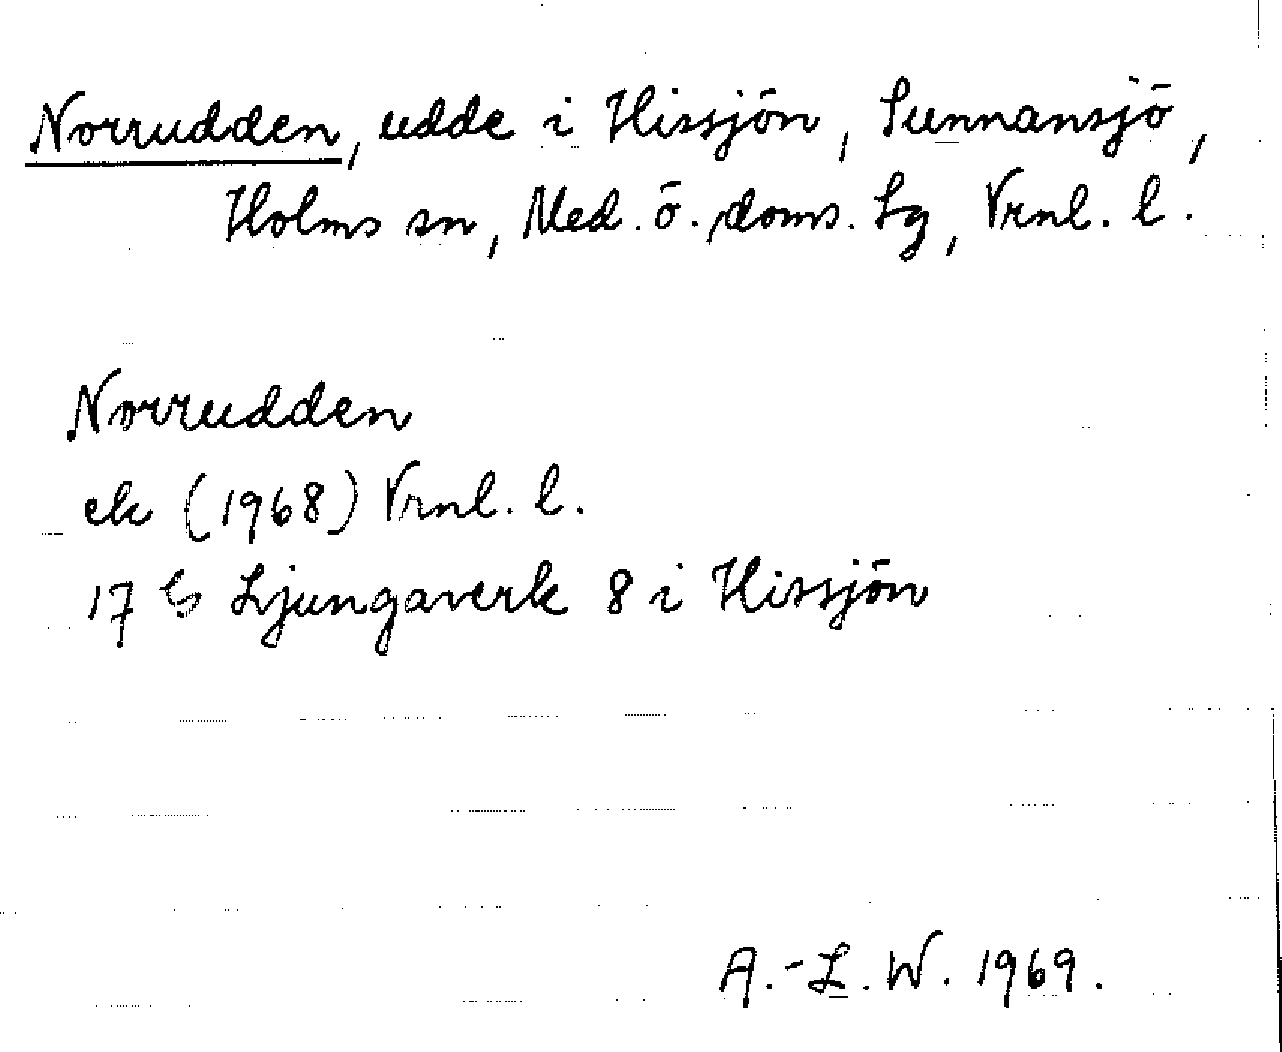 Norrudden, udde i Hissjön, Sunnansjö,
Holms sn, Med. ö. doms. Lg, Vrnl. l.
Norrudden
ek (1968) Vrnl. l.
17 G Ljungaverk 8 i Hissjön
A.-L. W. 1969.